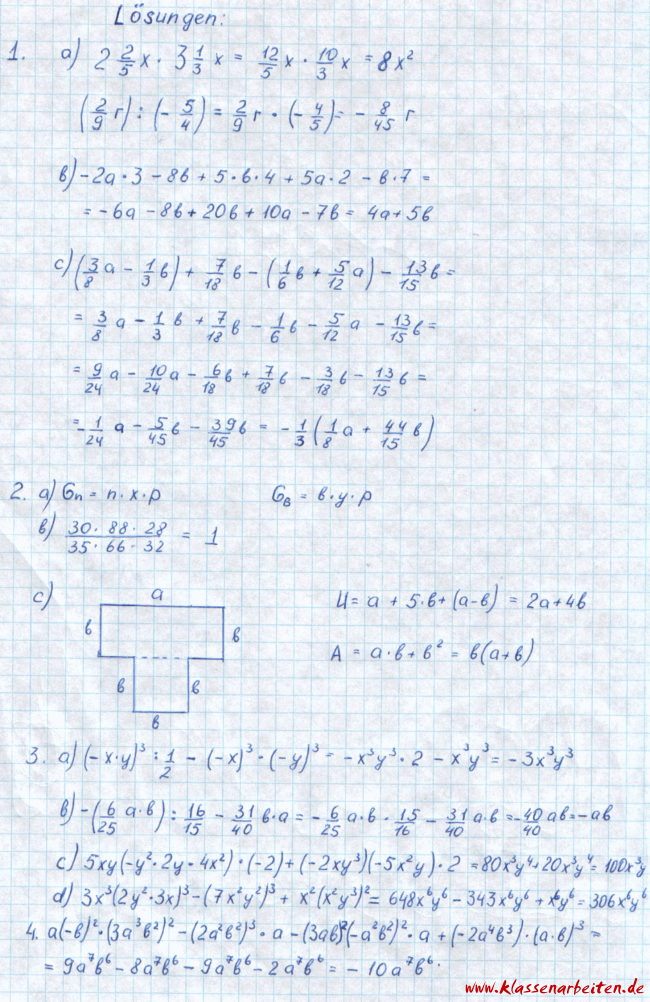 Lösungen:
1. a) 2 2/5 x · 3 1/3 x = 12/5 x · 10/3 x = 8x²
(2/9 r) : (- 5/4) = 2/9 r · (- 4/5) = - 8/45 r
b) -2a·3 - 8b + 5·b·4 + 5a·2 - b·7 =
= -6a - 8b + 20b + 10a - 7b = 4a + 5b
c) (3/8 a - 1/3 b) + 7/18 b - (1/6 b + 5/12 a) - 13/15 b =
= 3/8 a - 1/3 b + 7/18 b - 1/6 b - 5/12 a - 13/15 b =
= 9/24 a - 10/24 a - 6/18 b + 7/18 b - 3/18 b - 13/15 b =
= - 1/24 a - 5/45 b - 39/45 b = - 1/3 (1/8 a + 44/15 b)
2. a) Gn = n·x·p GB = b·y·p
b) 30·88·28 / 35·66·32 = 1
c) a
U = a + 5·b + (a-b) = 2a + 4b
b b
A = a·b + b² = b(a+b)
b b
b
3. a) (-x·y)³ : 1/2 - (-x)³ · (-y)³ = -x³y³ · 2 - x³y³ = -3x³y³
b) -(6/25 a·b) : 16/15 - 31/40 b·a = - 6/25 a·b · 15/16 - 31/40 a·b = - 40/40 ab = -ab
c) 5xy(-y²·2y·4x²)·(-2) + (-2xy³)(-5x²y)·2 = 80x³y⁴ + 20x³y⁴ = 100x³y
d) 3x³(2y²·3x)³ - (7x²y²)³ + x²(x²y³)² = 648x⁶y⁶ - 343x⁶y⁶ + x⁶y⁶ = 306x⁶y⁶
4. a(-b)²·(3a³b²)² - (2a²b²)³·a - (3ab)²(-a²b²)²·a + (-2a⁴b³)·(a·b)³ =
= 9a⁷b⁶ - 8a⁷b⁶ - 9a⁷b⁶ - 2a⁷b⁶ = -10a⁷b⁶.
www.klassenarbeiten.de